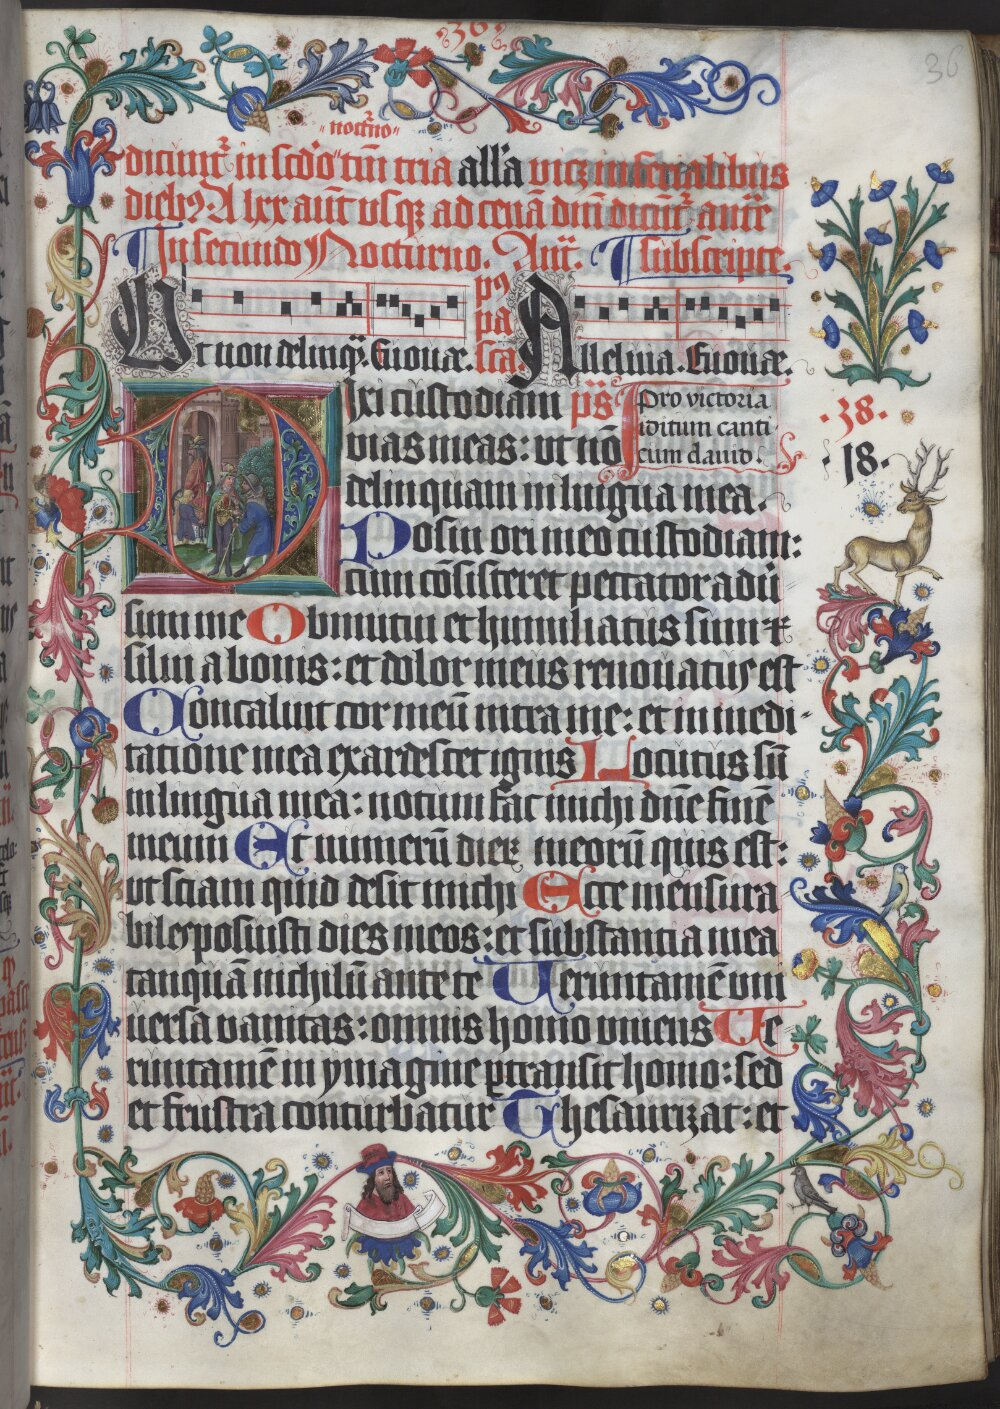 36
36
noct̄no
dicunt̄ in scd̓o tm̄ tria all̓a vicz in ferialibus
diebꝰ A lxx aut̄ usqꝫ ad cenā dn̄i dicunt̄ ant̄e
In secundo Nocturno. Ant̄. subscripte.
pꝰ
pa
Ut non delinqꝫ. Euouae. sca. Alleluia. Euouae.
Dixi custodiam ps̄ Pro victoria
vias meas: ut nō iditum canti
cum dauid.
delinquam in lingua mea.
.38.
.18.
Posui ori meo custodiam:
cum cōsisteret peccator adu
sum me Obmutui et humiliatus sum ⁊
silui a bonis: et dolor meus renouatus est
Concaluit cor meū intra me: et in medi-
tatione mea exardescet ignis Locutus sū
in lingua mea: notum fac michi dn̄e finē
meum Et numerū dieꝝ meorū quis est:
ut sciam quid desit michi Ecce mensura
biles posuisti dies meos: et substancia mea
tanquā nichilū ante te Ueruntamē vni
uersa vanitas: omnis homo viuens Ue
runtamē in ymagine ꝑtransit homo: sed
et frustra conturbatur Thesaurizat: et